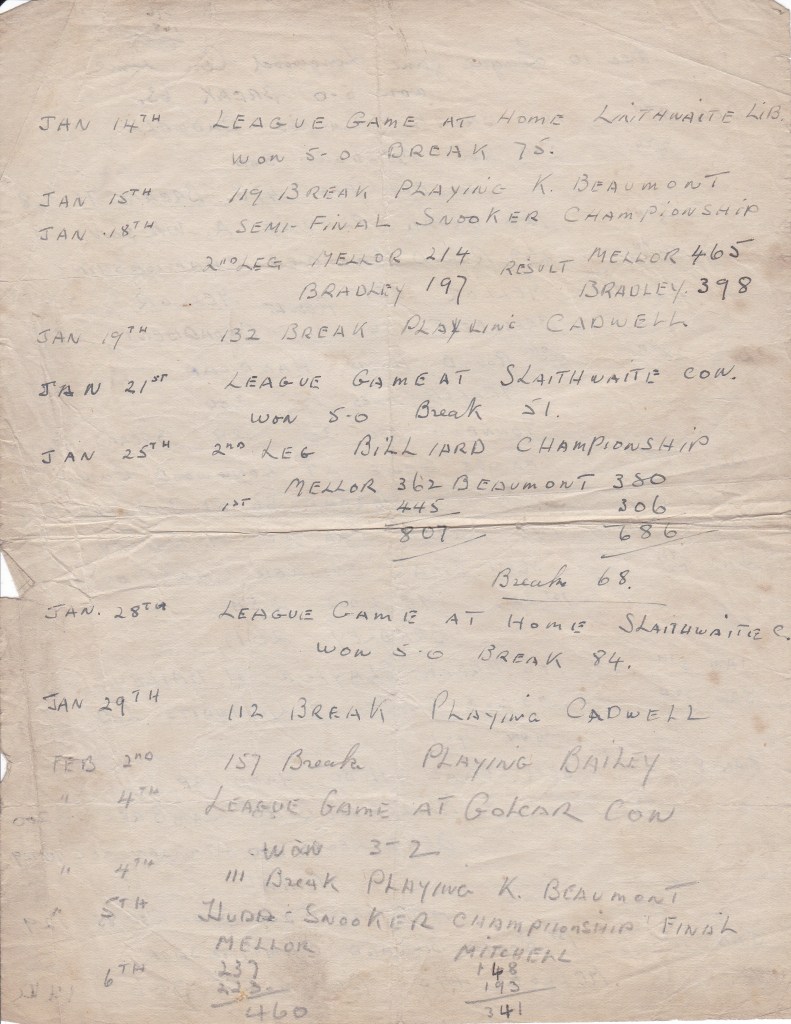 JAN 14TH LEAGUE GAME AT HOME LINTHWAITE LIB.
WON 5-0 BREAK 75.
JAN 15TH 119 BREAK PLAYING K. BEAUMONT
JAN 18TH SEMI-FINAL SNOOKER CHAMPIONSHIP
2ND LEG MELLOR 214 RESULT MELLOR 465
BRADLEY 197 BRADLEY. 398
JAN 19TH 132 BREAK PLAYLING CADWELL
JAN 21ST LEAGUE GAME AT SLAITHWAITE CON.
WON 5-0 Break 51.
JAN 25TH 2ND LEG BILLIARD CHAMPIONSHIP
MELLOR 362 BEAUMONT 380
1ST 445 306
807 686
Break 68.
JAN. 28TH LEAGUE GAME AT HOME SLAITHWAITE C.
WON 5-0 BREAK 84.
JAN 29TH 112 BREAK PLAYING CADWELL
FEB 2ND 157 Break PLAYING BAILEY
" 4TH LEAGUE GAME AT GOLCAR CON
WON 3-2
" 4TH 111 Break PLAYING K. BEAUMONT
5TH HUDD - SNOOKER CHAMPIIONSHIP FINAL
MELLOR MITCHELL
6TH 237 148
223 193
460 341